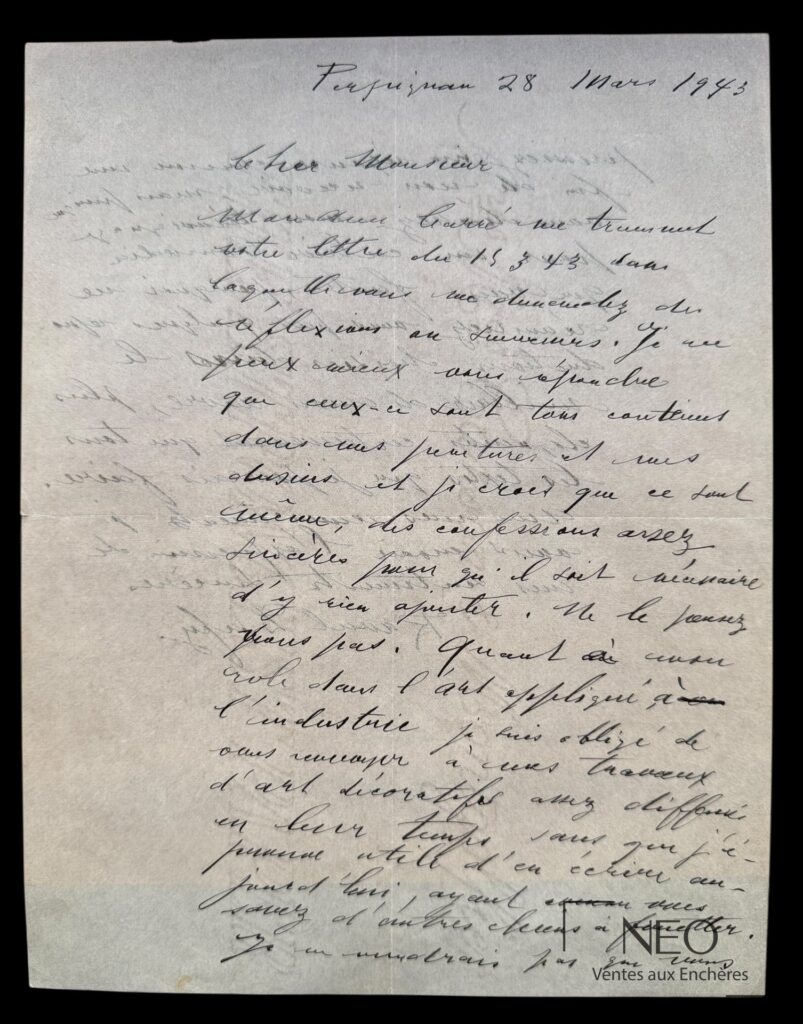 Perpignan 28 Mars 1943
Cher Monsieur
Monsieur Carré me transmet
votre lettre du 15 3 43 dans
laquelle vous me demandez des
réflexions ou souvenirs. Je ne
peux mieux vous répondre
que ceux-ci sont tous contenus
dans mes peintures et mes
dessins et je crois que ce sont
même, des confessions assez
sincères pour qu'il soit nécessaire
d'y rien ajouter. Ne le pensez
vous pas. Quant à mon
role dans l'art appliqué à
l'industrie je suis obligé de
vous renvoyer à mes travaux
d'art décoratifs assez diffusés
en leur temps sans que j'é-
prouve utile d'en écrire au-
jourd'hui, ayant vous
savez d'autres choses à fouetter.
Je ne voudrais pas que vous
NEO
Ventes aux Enchères